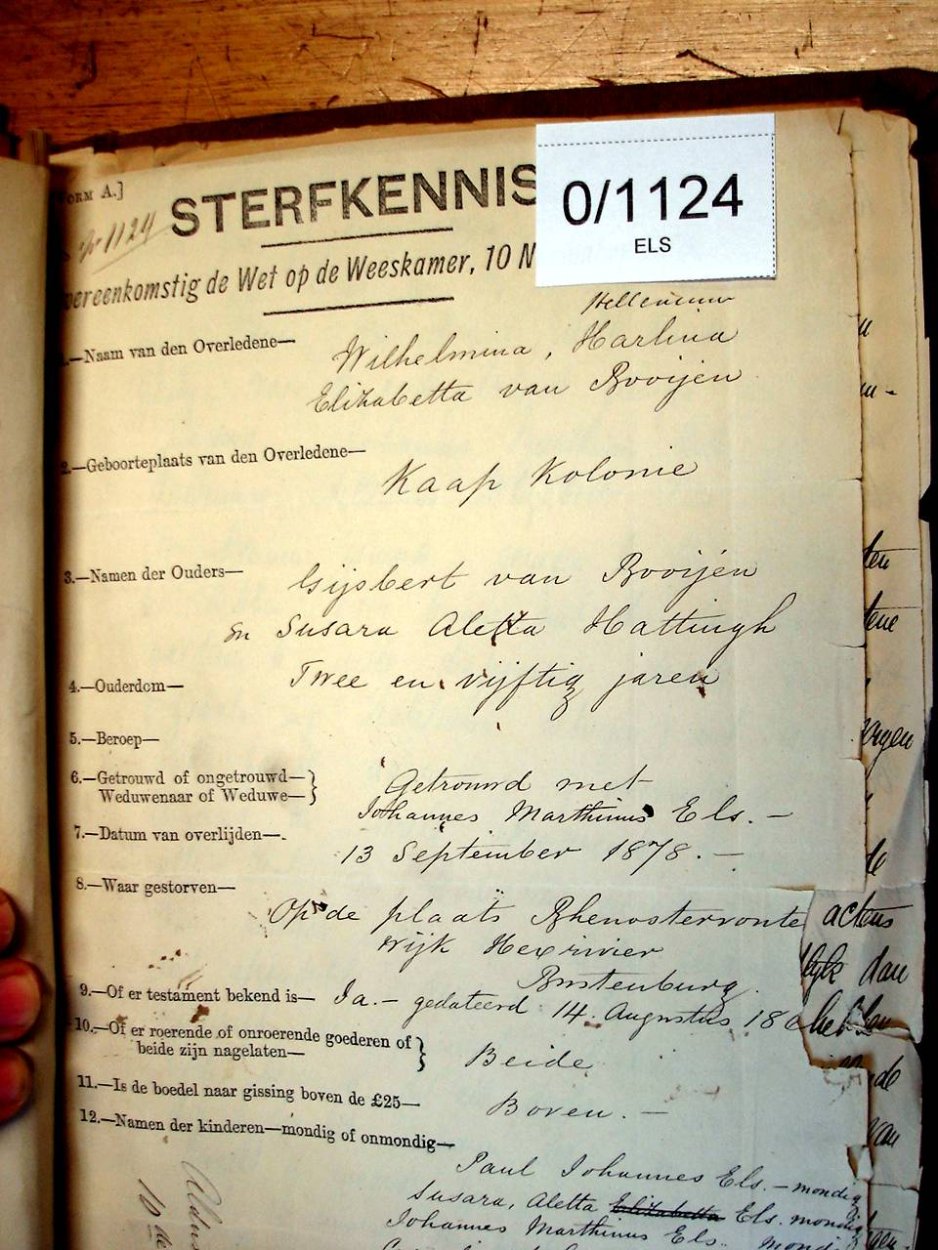 [FORM A.]
Nr 1124
STERFKENNIS
0/1124
ELS
overeenkomstig de Wet op de Weeskamer, 10 N
1.—Naam van den Overledene—
Wilhelmina, Harlina
Elizabetta van Booijen
2.—Geboorteplaats van den Overledene—
Kaap Kolonie
3.—Namen der Ouders—
Gijsbert van Booijen
en Susara Aletta Hattingh
4.—Ouderdom—
Twee en vijftig jaren
5.—Beroep—
6.—Getrouwd of ongetrouwd—
Weduwenaar of Weduwe—
Getrouwd met
Johannes Marthinus Els. —
7.—Datum van overlijden—
13 September 1878. —
8.—Waar gestorven—
Op de plaats Rhenosterfonte
wijk Hexrivier
Rustenburg.
9.—Of er testament bekend is—
Ja. — gedateerd 14 Augustus 18
10.—Of er roerende of onroerende goederen of
beide zijn nagelaten—
Beide
11.—Is de boedel naar gissing boven de £25—
Boven. —
12.—Namen der kinderen—mondig of onmondig—
Paul Johannes Els. — mondig
Susara, Aletta Elizabetta Els. mondig
Johannes Marthinus Els. mondi
ten
tene
actens
dan
de
van